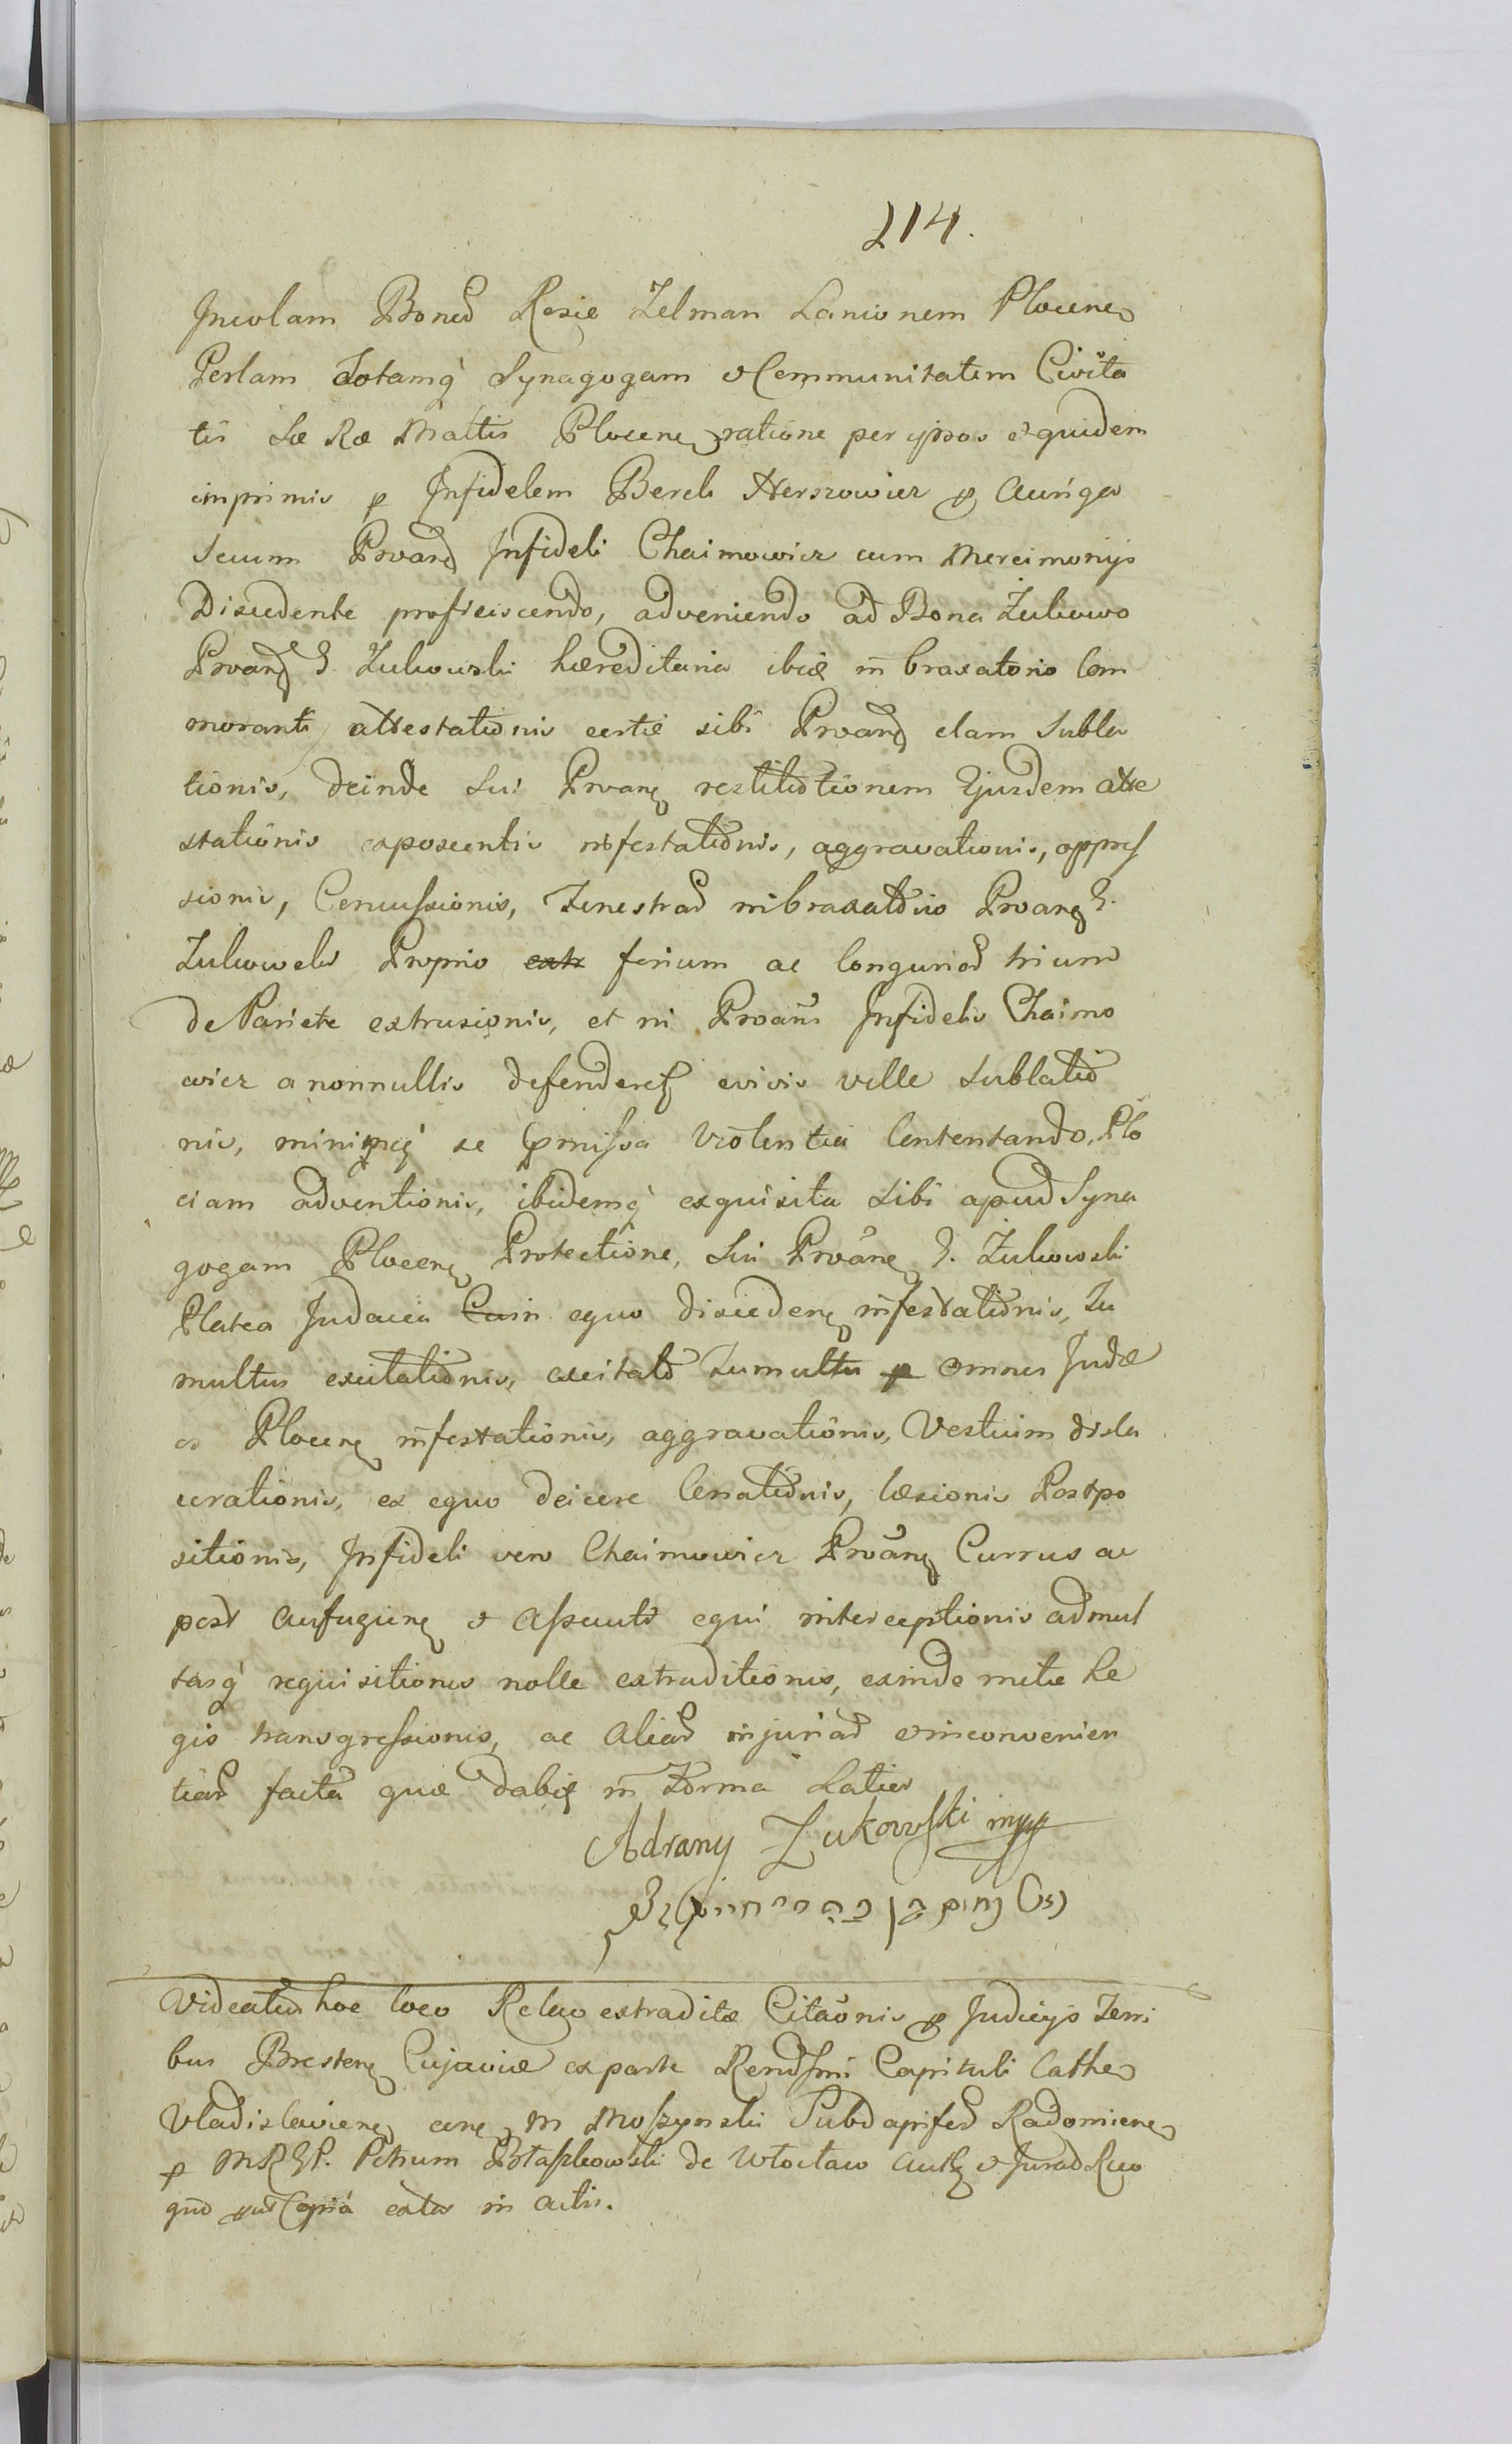 214.
Incolam Bonor Rosie Zelman Lanionem Plocens
Perlam Totamq Synagogam & Communitatem Civita
tis Sæ Ræ Mattis Plocens ratione per ipsos & quidem
imprimis p Infidelem Berek Herszowicz & Auriga
secum Proand Infideli Chaimowicz cum Mercimonijs
Discedente proficiscendo, adveniendo ad Bona Zukowo
Proand G Zukowski hæreditaria ibiq in braxatorio Com
moranti attestationis certæ sibi Proand clam Subla
tionis, deinde Sui Proans restitutionem Ejusdem atte
stationis exposcentis infestationis, aggravationis, oppres
sionis, Concussionis, Fenestrar in braxatorio Proans G.
Zukowski Proprio extr ferium ac longuriar trium
de Pariete extrusionis, et ni Proans Infidelis Chaimo
wicz a nonnullis defenderet evivis velle sublatio
nis, minimeq se præmissa Violentia Contentando, Plo
ciam adventionis, ibidemq exquisita Sibi apud Syna
gogam Plocens Protectione, Sui Proans G. Zukowski
Platea Judaica Cum equo discedens infestationis, Tu
multus excitationis, excitato Tumultu p omnes Judæ
os Plocens infestationis, aggravationis, Vestium disla
cerationis, ex equo deicere Conationis, læsionis Postpo
sitionis, Infideli vero Chaimowicz Proans Currus ac
post Aufugiens & Assecuto equi interceptionis ad mul
tasq requisitiones nolle extraditionis, exinde metæ Le
gis transgressionis, ac Aliar injuriar & inconvenien
tiar facta quæ dabiq in Forma Latius
Adrany Zukowski mpp
Videatur hoc loco Relao extraditæ Citaonis p Judicijs Terri
bus Brestens Cujaviæ ex parte Rendssmi Capituli Cathed
Vladislaviens cens M Moszynski Subdapifer Radomiens
p MRGP. Petrum Błaszkowski de Włocław Auth & Jurad Reco
gno put Copia extat in Actis.